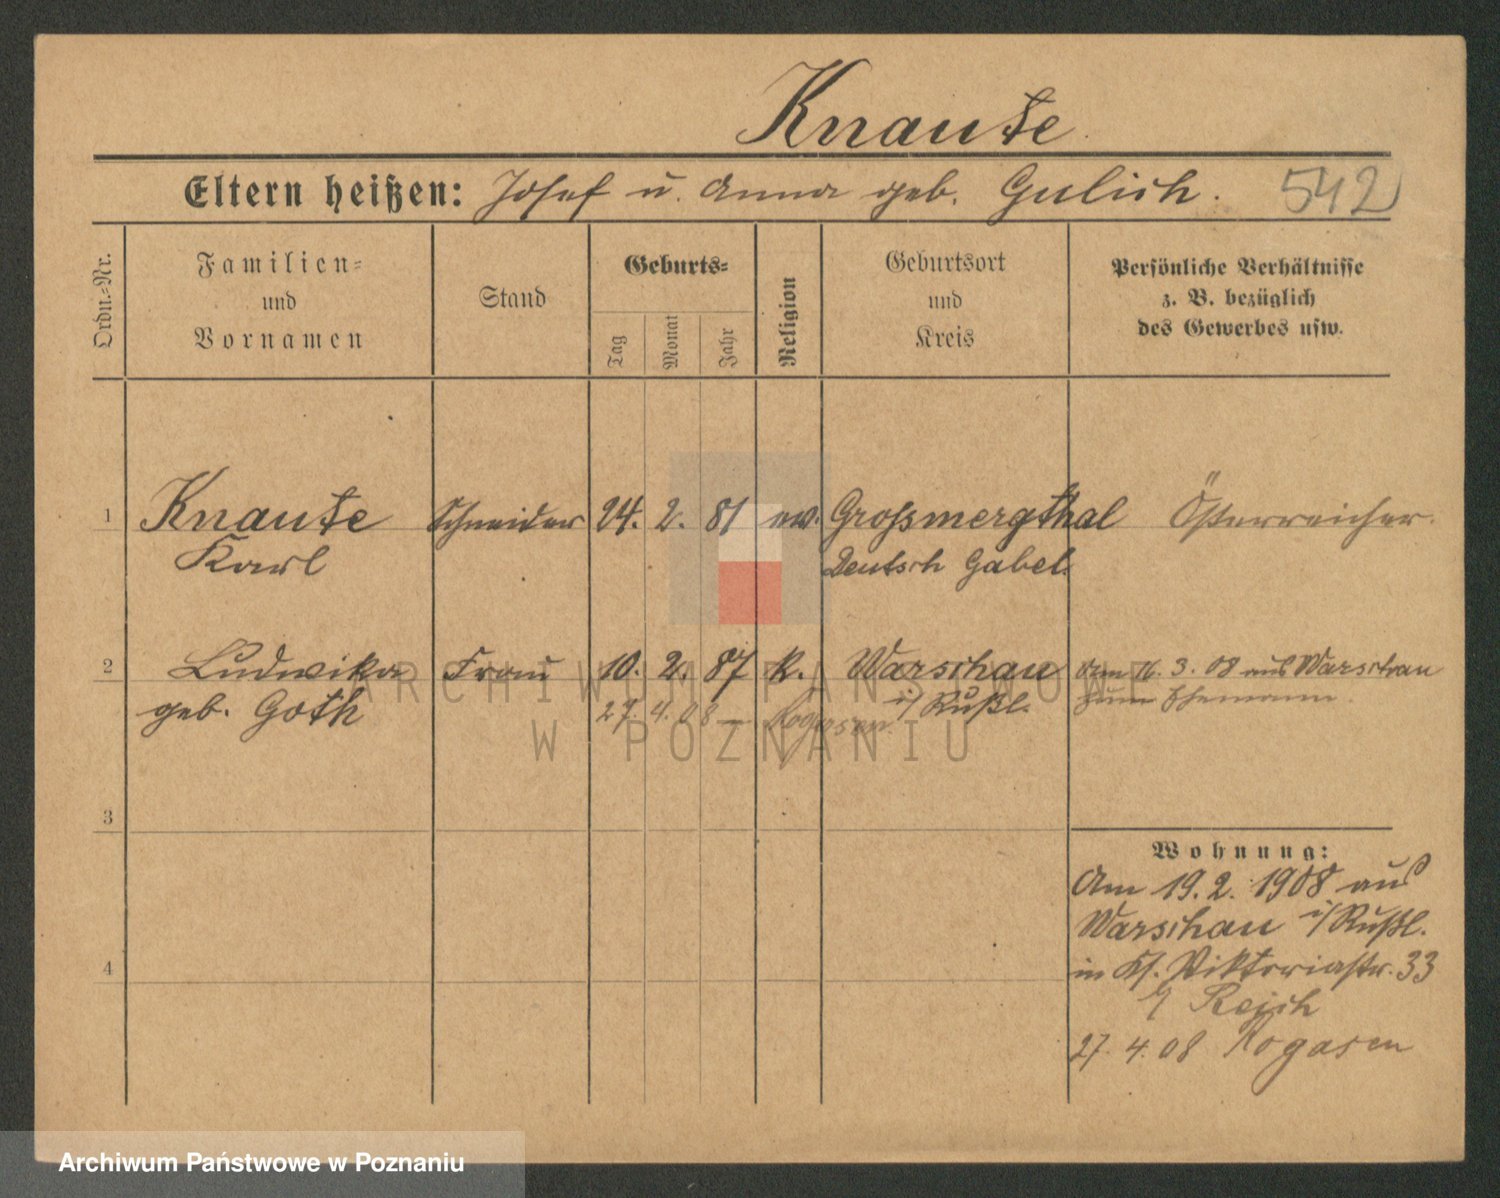 Knaute
Eltern heißen: Josef u. Anna geb. Gulich. 542
Ordn.-Nr.
Familien-
und
Vornamen
Stand
Geburts-
Tag
Monat
Jahr
Religion
Geburtsort
und
Kreis
Persönliche Verhältnisse
z. B. bezüglich
des Gewerbes usw.
1 Knaute Schneider 24. 2. 81 ev. Grossmergthal Österreicher.
Karl Deutsch Gabel.
2 Ludwika Frau 10. 2. 87 k. Warschau am 16. 3. 08 aus Warschau
geb. Goth i/Rußl. zum Ehemann.
27. 4. 08 — Rogasen
3
4
Wohnung:
Am 19. 2. 1908 aus
Warschau i/Rußl.
in Viktoriastr. 33
27. 4. 08 Rogasen
ARCHIWUM PAŃSTWOWE
W POZNANIU
Archiwum Państwowe w Poznaniu